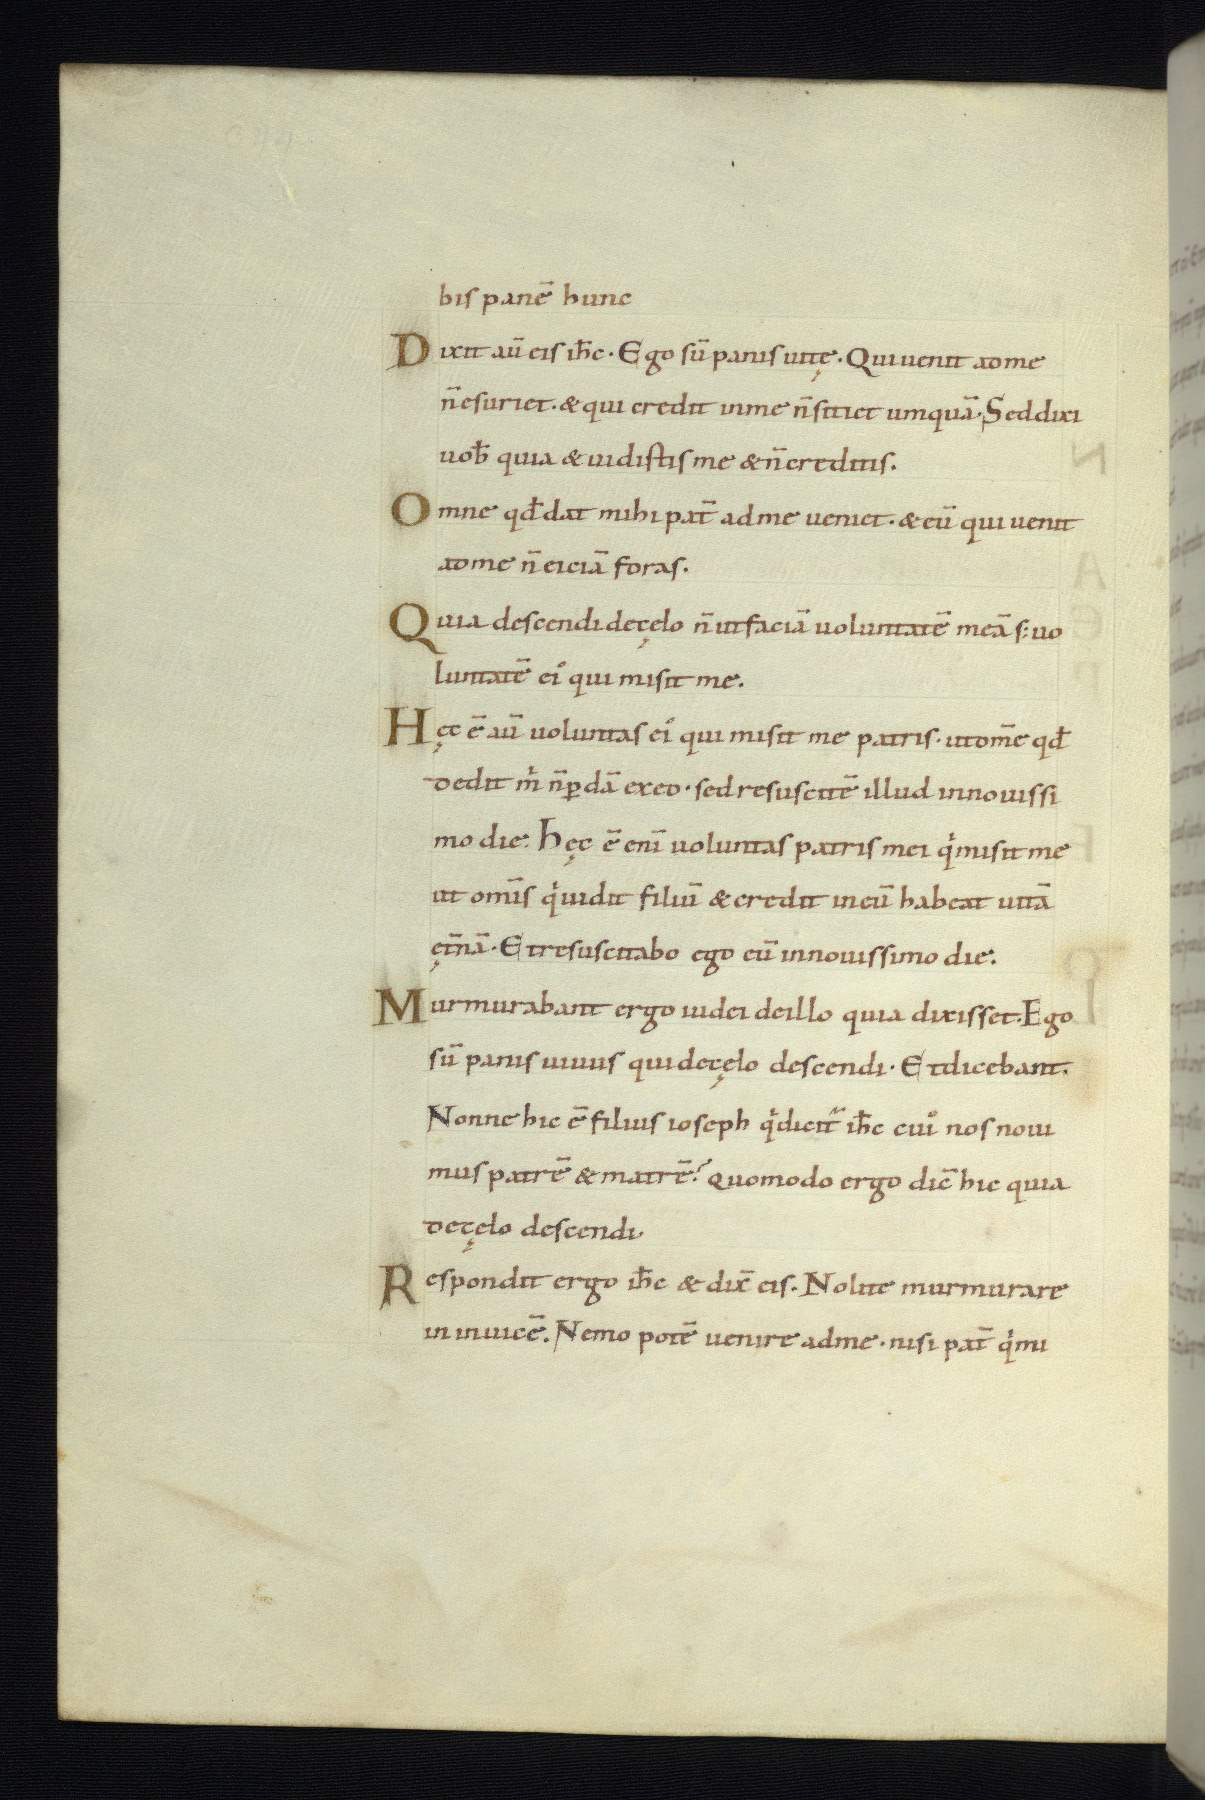 bis panē hunc
Dixit aū eis ih̄c· Ego sū panis uitę· Qui uenit ad me
n̄ esuriet· & qui credit in me n̄ sitiet umquā· Sed dixi
uob̄ quia & uidistis me & n̄ creditis.
Omne qd̄ dat mihi pat̄ ad me ueniet· & eū qui uenit
ad me n̄ eiciā foras.
Quia descendi de cęlo n̄ ut faciā uoluntatē meā s: uo
luntatē ei᾿ qui misit me.
Hęc ē aū uoluntas ei᾿ qui misit me patris· ut om̄e qd̄
dedit m̊ n̄ ꝑdā ex eo· sed resuscitē illud in nouissi
mo die: Hęc ē eni̅ uoluntas patris mei q̊ misit me
ut om̄is q̊ uidit filiū & credit in eū habeat uitā
ęt̄nā· Et resuscitabo ego eū in nouissimo die.
Murmurabant ergo iudei de illo quia dixisset· Ego
sū panis uiuus qui de cęlo descendi· Et dicebant.
Nonne hic ē filius ioseph q̊ dicit᷑ ih̄c cui᾿ nos noui
mus patrē & matrē? Quomodo ergo dic̄ hic quia
de cęlo descendi.
Respondit ergo ih̄c & dix̄ eis. Nolite murmurare
in inuicē. Nemo potē uenire ad me· nisi pat̄ q̊ mi